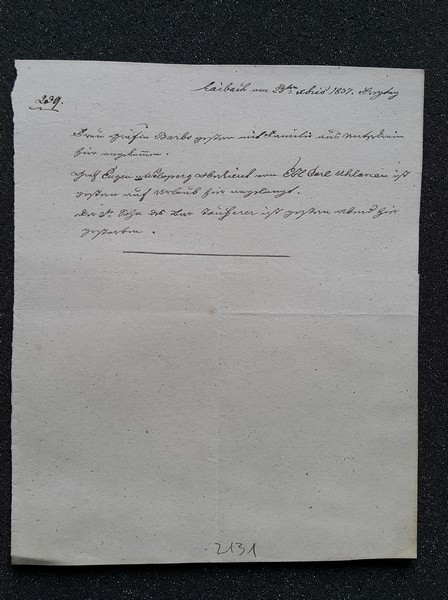 Laibach am 1837.
239.
Frau Gräfin Barbo gestern mit Familie aus Unterkrain
hier angekommen.
Graf Auersperg von Carl Uhlanen ist
gestern auf Urlaub hier angelangt.
Der Sohn des ist gestern Abend hier
gestorben.
2131